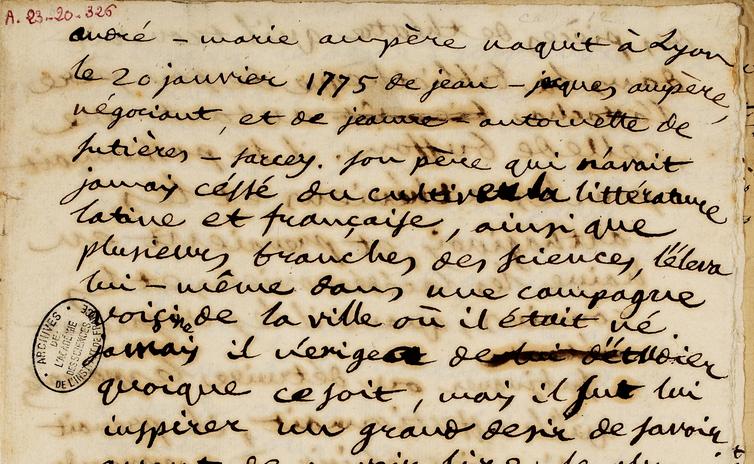 A. 23-20-326
andré - marie ampère naquit à Lyon
le 20 janvier 1775 de jean - jaques ampère,
négociant, et de jeanne - antoinette de
sutières - sarcey. son père qui n'avait
jamais céssé de cultiver la littérature
latine et française, ainsi que
plusieurs branches des sciences, l'éleva
lui - même dans une campagne
voisine de la ville où il était né
jamais il n'exigea de lui d'étudier
quoique ce soit, mais il sut lui
inspirer un grand desir de savoir
ARCHIVES DE L'ACADÉMIE DES SCIENCES DE L'INSTITUT DE FRANCE